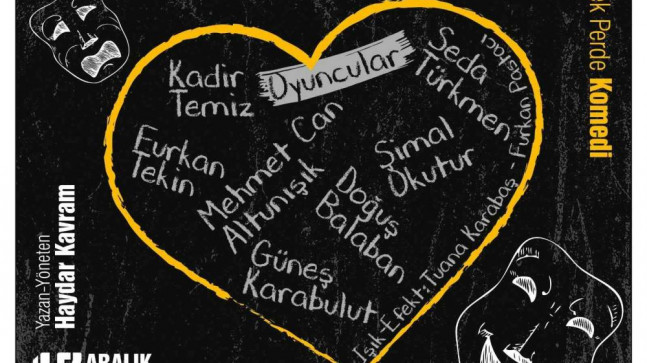 Oyuncular
Kadir
Temiz
Seda
Türkmen
Furkan
Tekin
Mehmet Can
Altunışık
Şimal
Okutur
Doğuş
Balaban
Güneş
Karabulut
Işık-Efekt: Tuana Karabaş - Furkan Pastacı
Perde Komedi
Yazan-Yöneten
Haydar Kavram
ARALIK